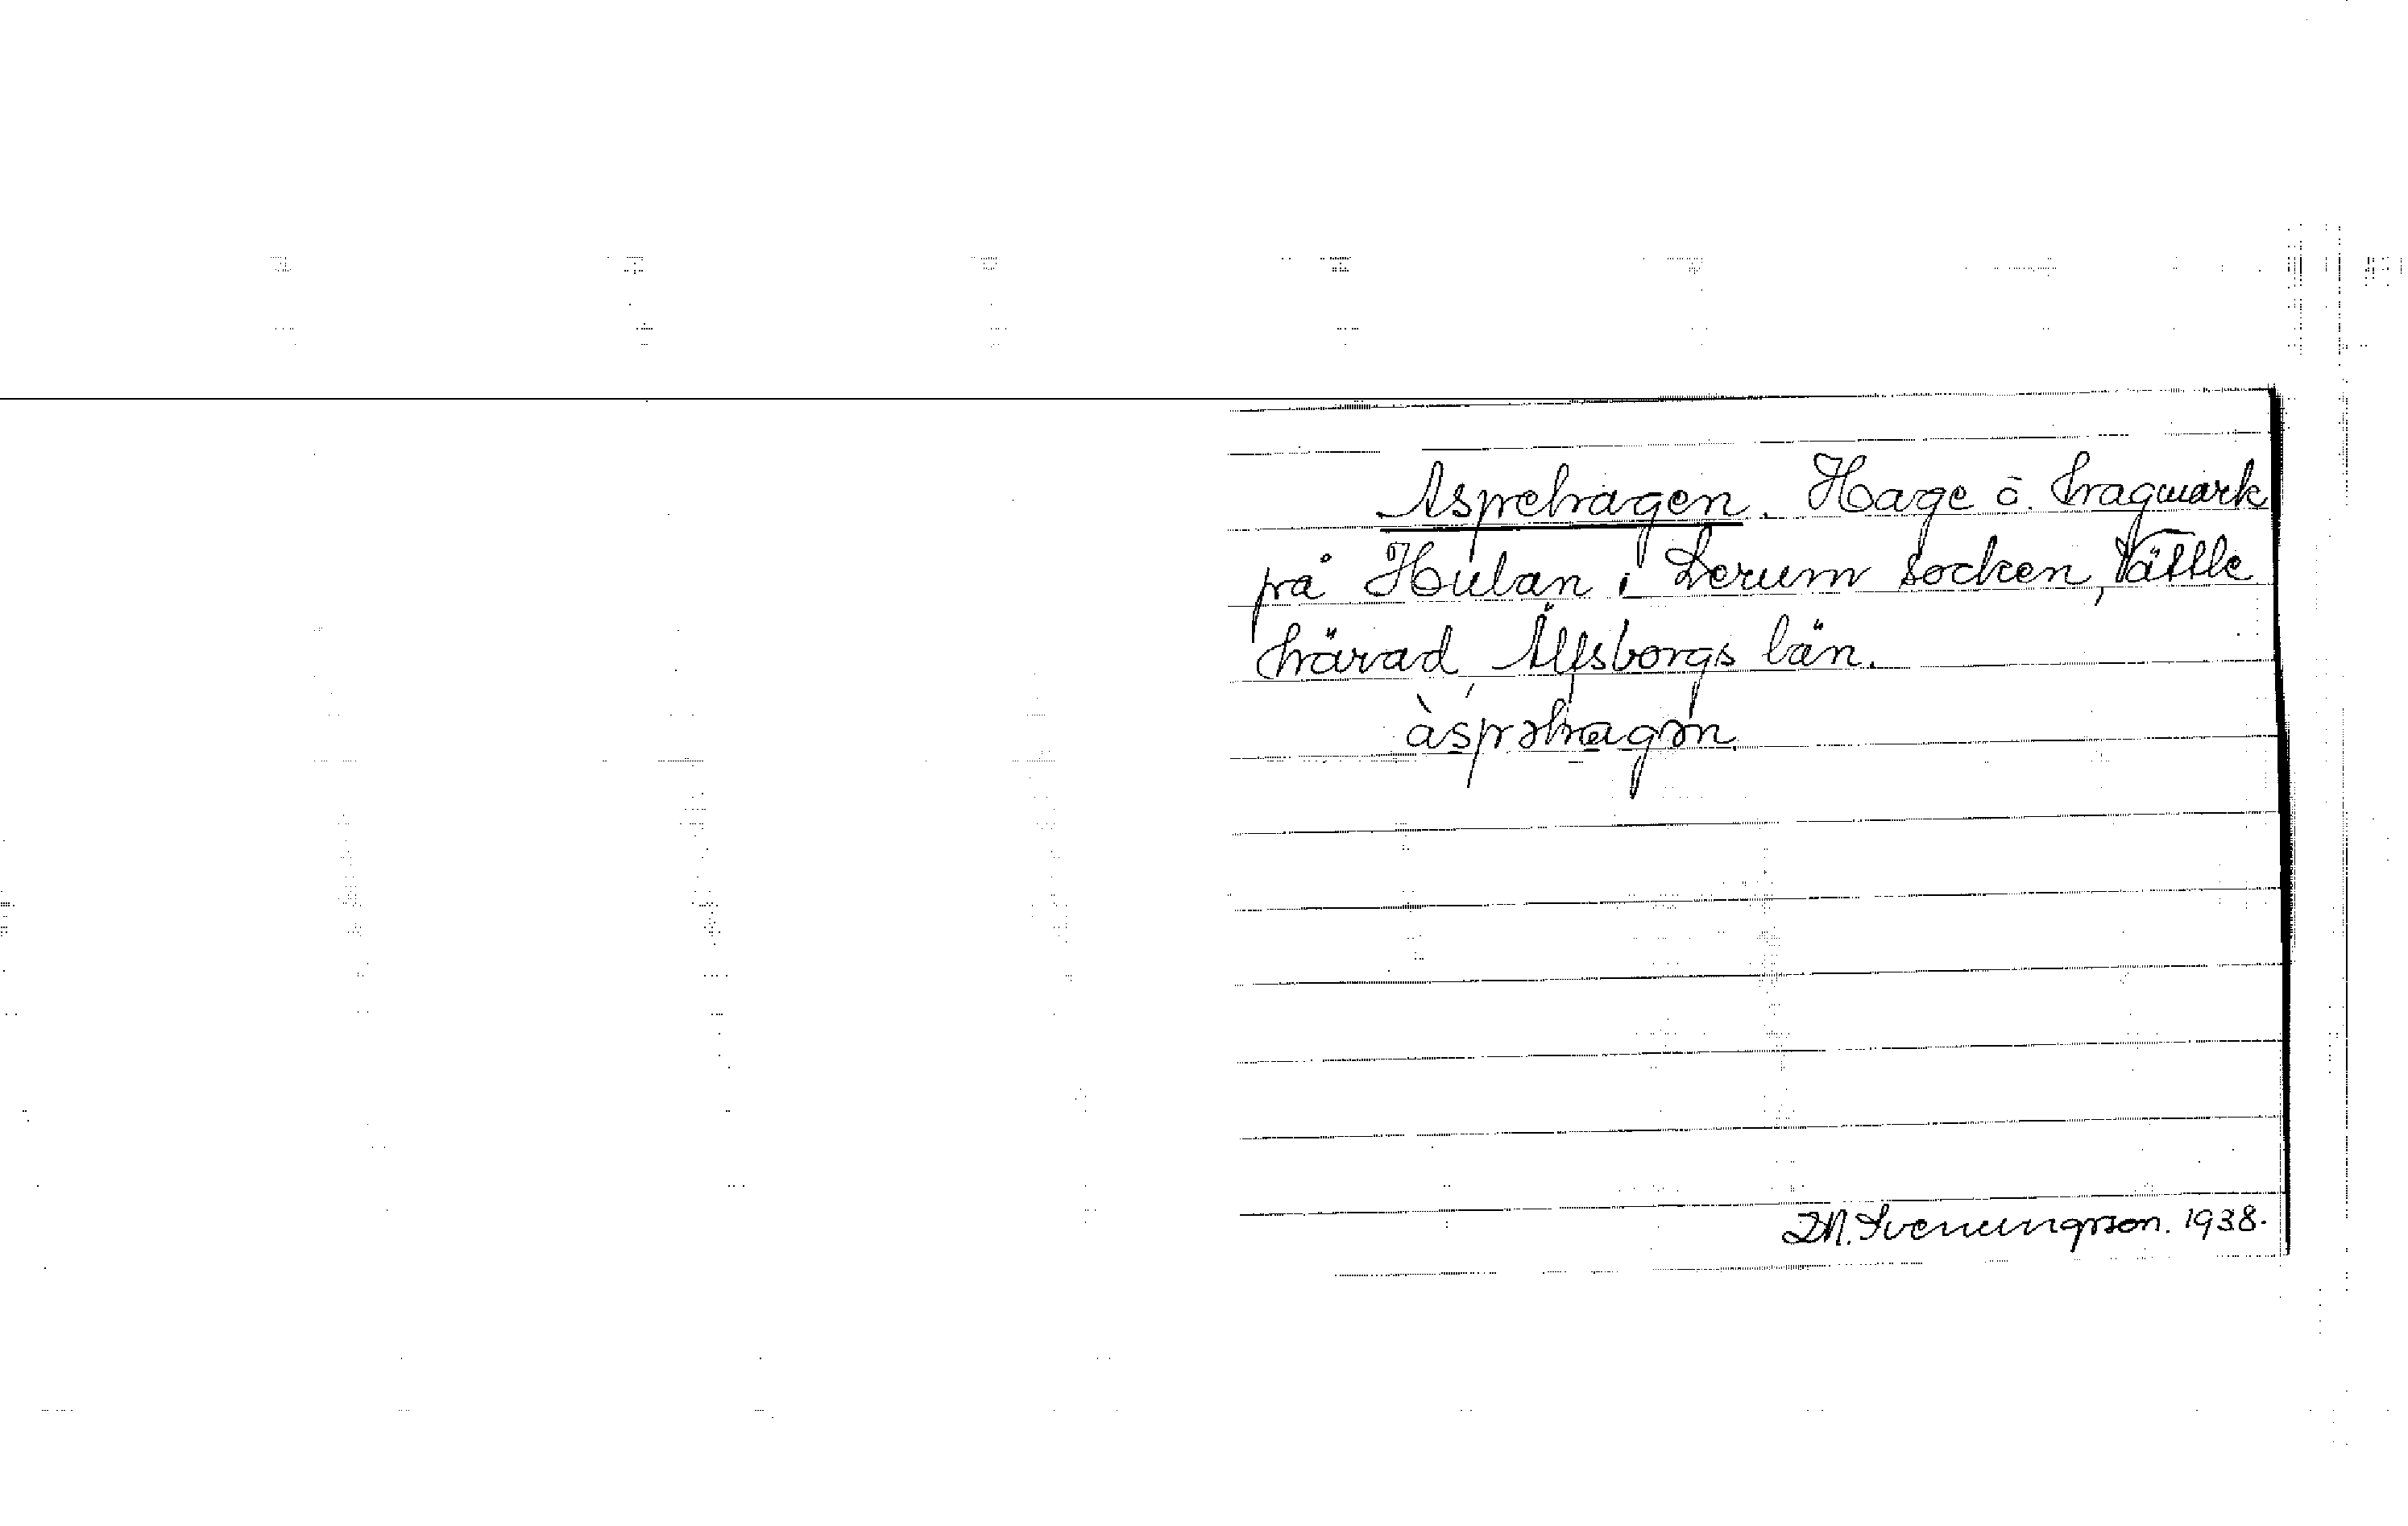 Aspehagen. Hage o. hagmark
på Hulan i Lerum socken, Vättle
härad, Älfsborgs län.
àspəhagən.
D.M. Svenungsson. 1938.